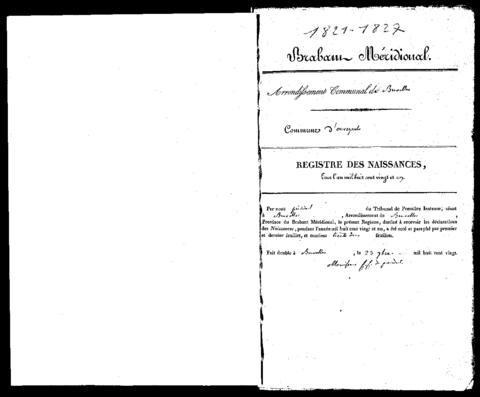 1821-1827
Brabant Méridional.
Arrondissement Communal de Bruxelles
Commune d'
REGISTRE DES NAISSANCES,
Pour l'an mil huit cent vingt et un.
Par nous président du Tribunal de Première Instance, séant
à Bruxelles, Arrondissement de Bruxelles,
Province du Brabant Méridional, le présent Registre, destiné à recevoir les déclarations
des Naissances, pendant l'année mil huit cent vingt et un, a été coté et paraphé par premier
et dernier feuillet, et contient feuillets.
Fait double à Bruxelles, le 23 9bre mil huit cent vingt.